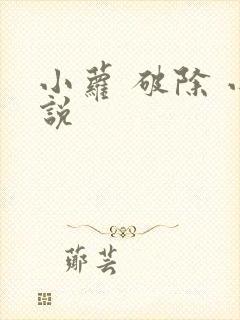 小蘿 破除 小
說
鄭芸